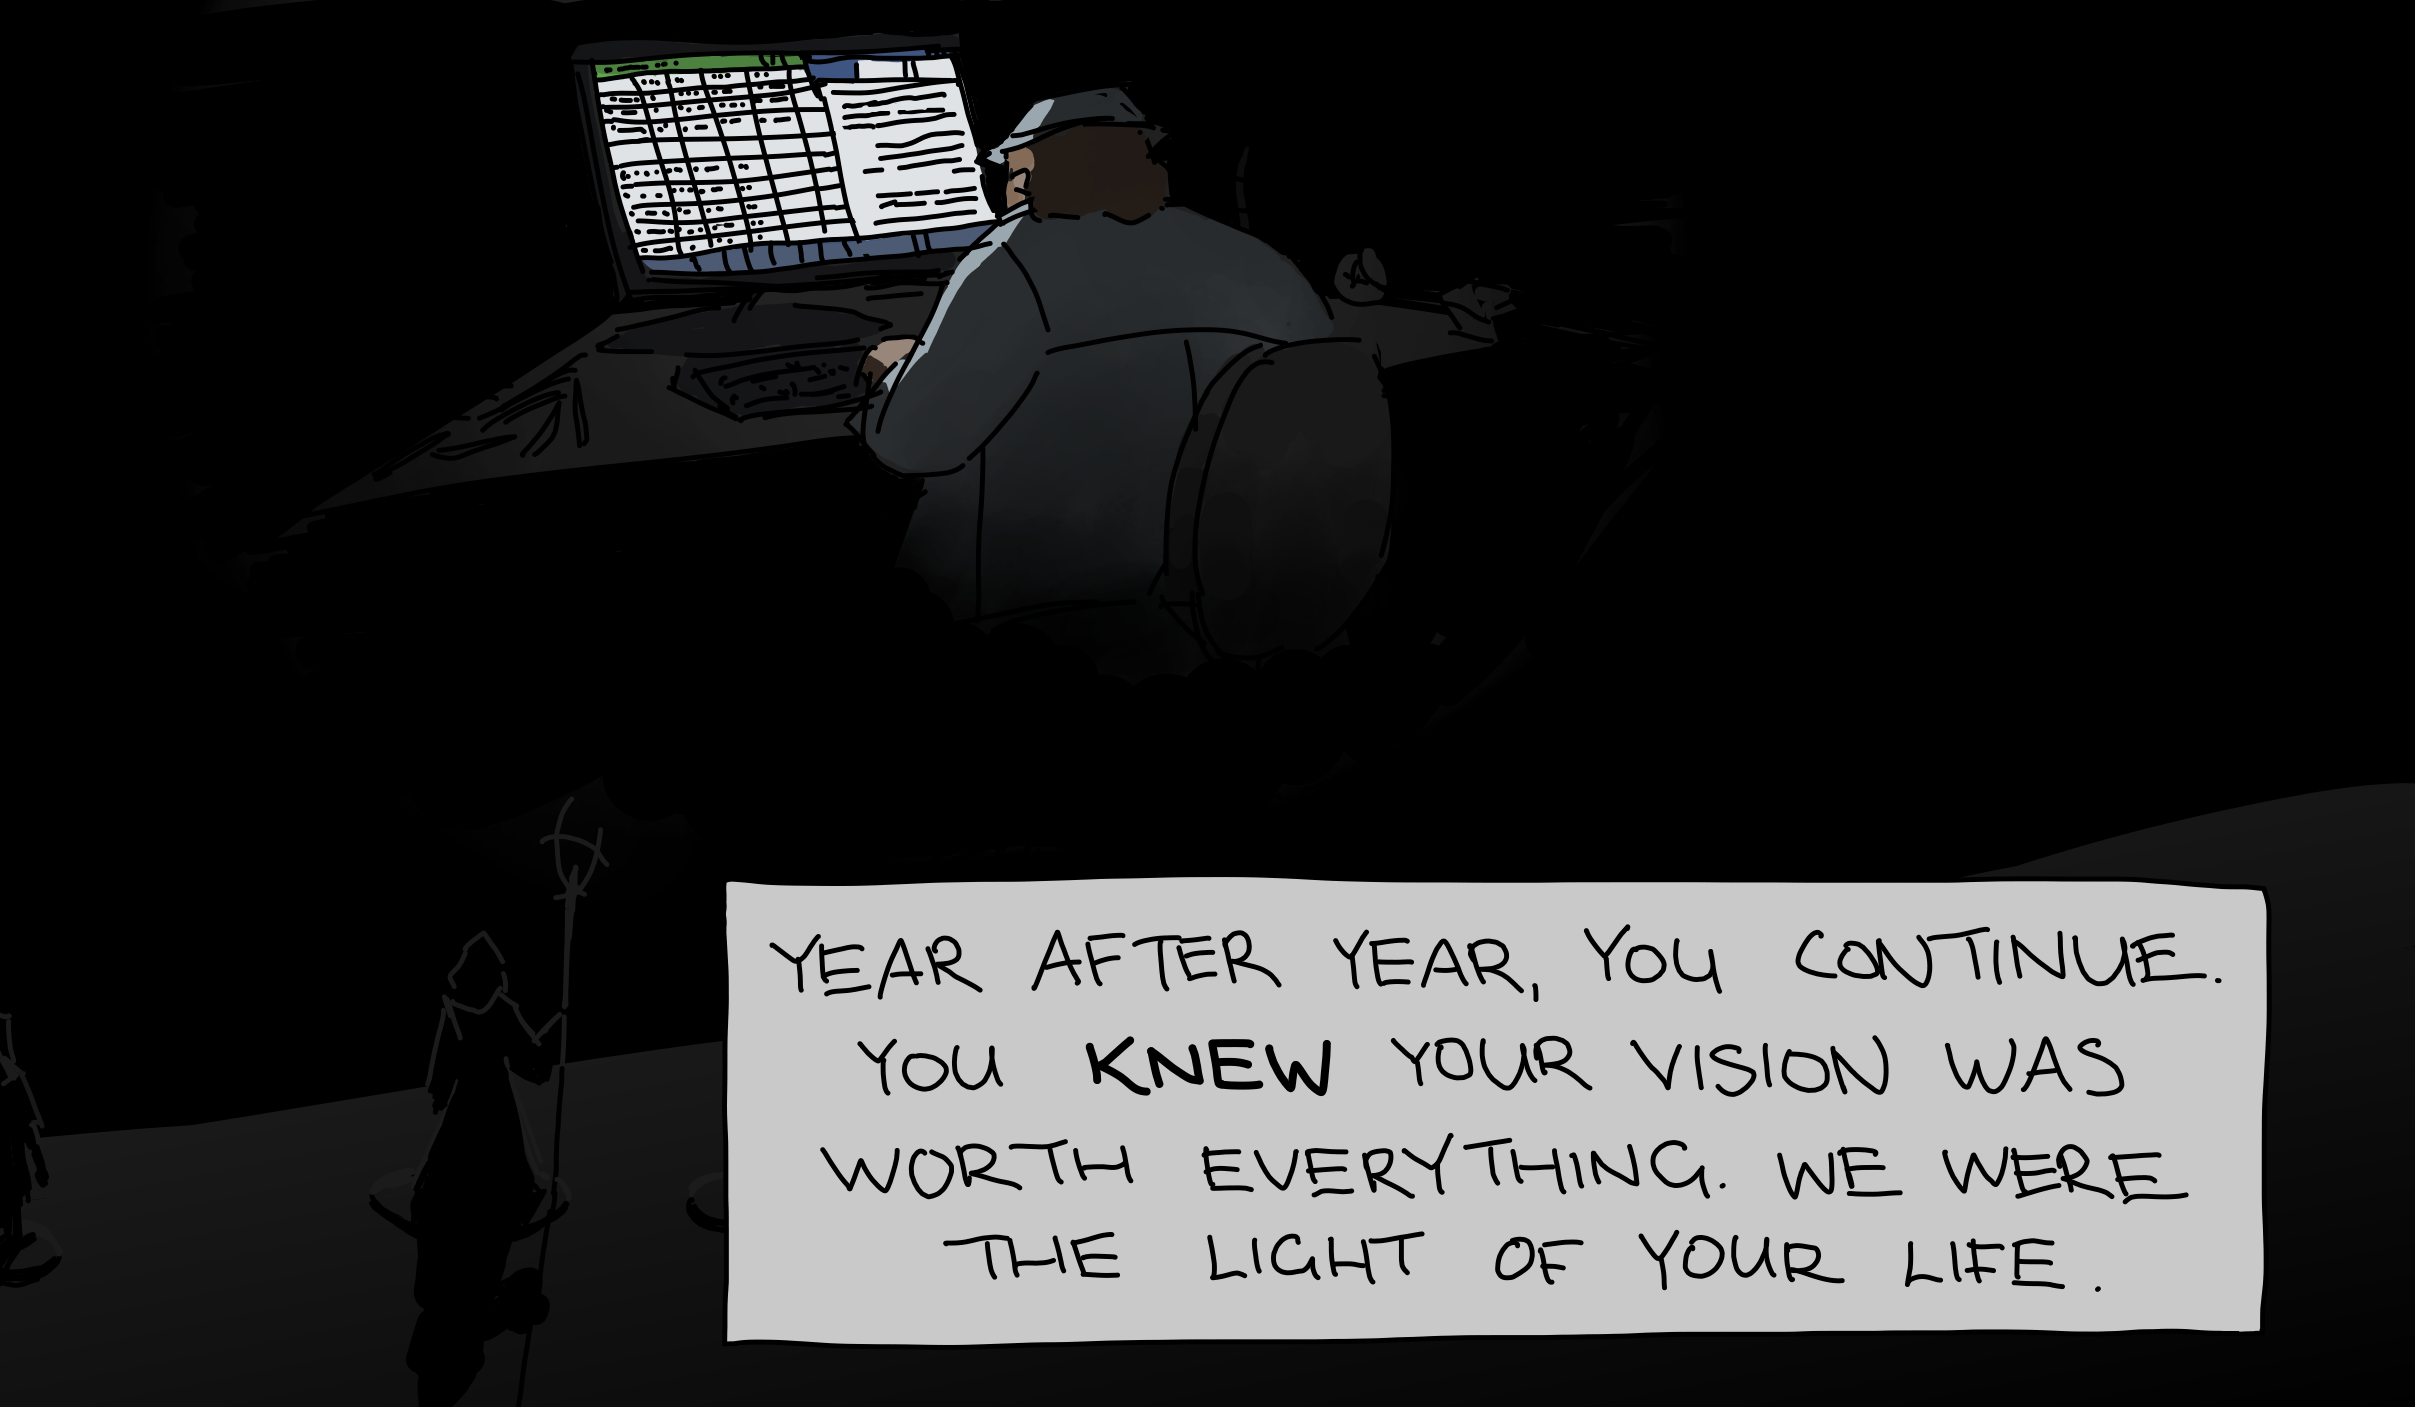 YEAR AFTER YEAR, YOU CONTINUE.
YOU KNEW YOUR VISION WAS
WORTH EVERYTHING. WE WERE
THE LIGHT OF YOUR LIFE.